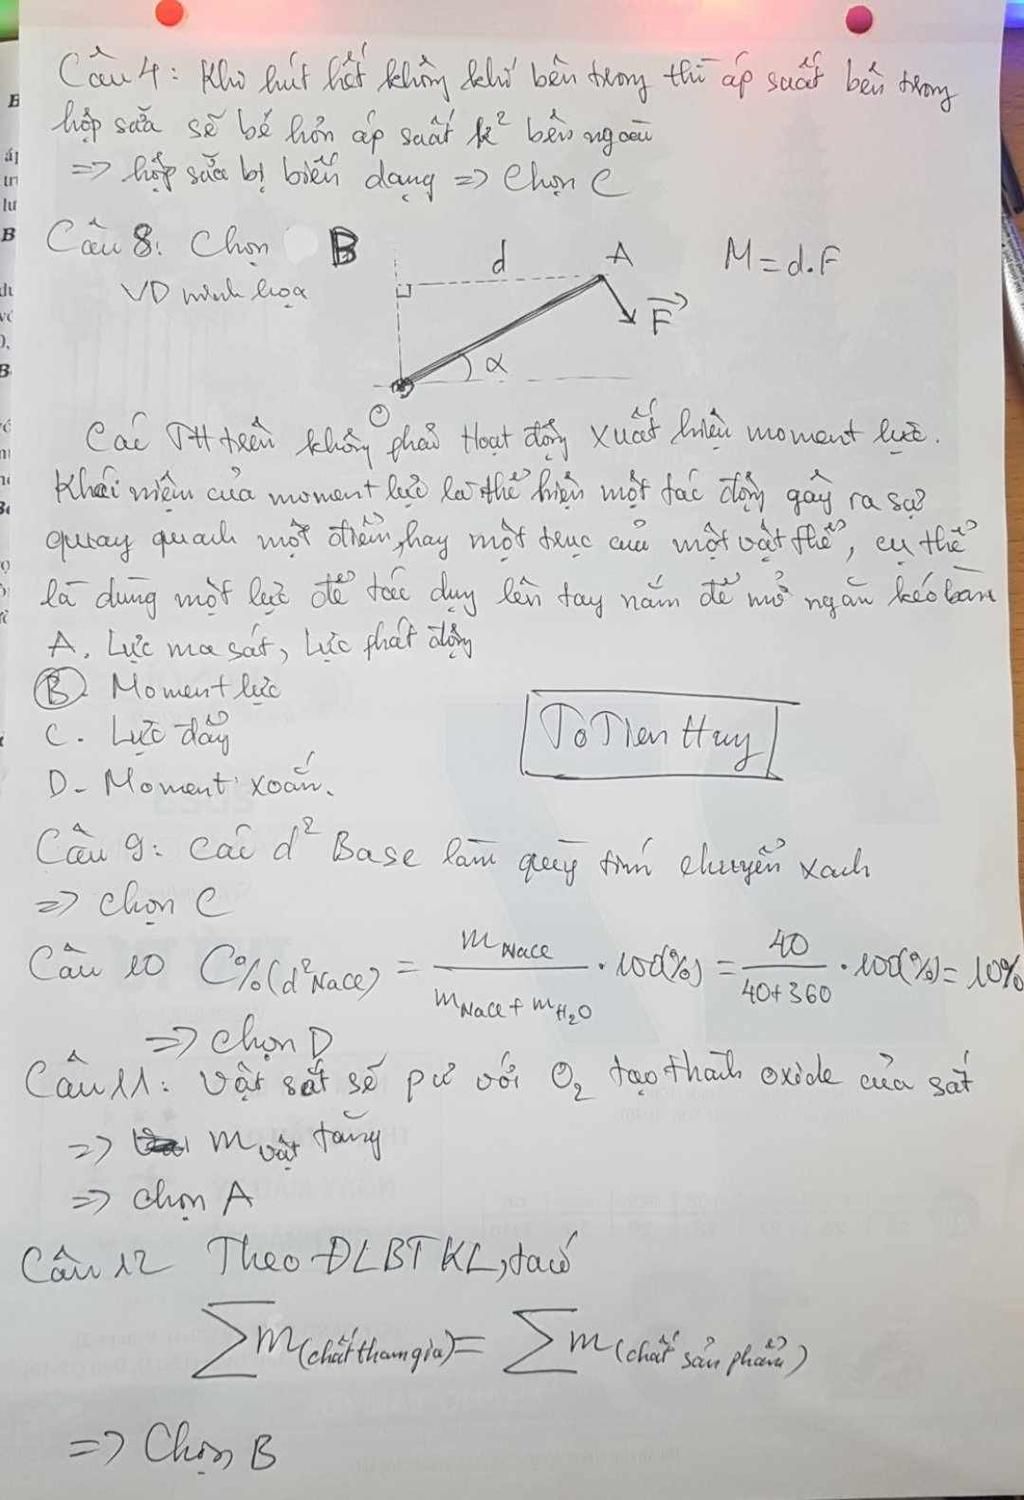 Câu 4: Khi hút hết không khí bên trong thì áp suất bên trong
hộp sữa sẽ bé hơn áp suất k² bên ngoài
=> hộp sữa bị biến dạng => Chọn C
Câu 8: Chọn B
VD minh họa
d
A
M = d.F
F
α
O
Các TH trên không phải Hoạt động xuất hiện moment lực.
Khái niệm của moment lực là thể hiện một tác động gây ra sự
quay quanh một điểm, hay một trục của một vật thể, cụ thể
là dùng một lực để tác dụng lên tay nắm để mở ngăn kéo bàn
A. Lực ma sát, Lực phát động
B. Moment lực
C. Lực đẩy
D. Moment xoắn.
Tô Tiến Huy
Câu 9: Các d² Base làm quỳ tím chuyển xanh
=> Chọn C
Câu 10 C%(d² NaCl) = mNaCl / (mNaCl + mH₂O) . 100(%) = 40 / (40+360) . 100(%) = 10%
=> Chọn D
Câu 11: Vật sắt sẽ pư với O₂ tạo thành oxide của sắt
=> m vật tăng
=> chọn A
Câu 12 Theo ĐLBTKL, ta có
∑m(chất tham gia) = ∑m(chất sản phẩm)
=> Chọn B